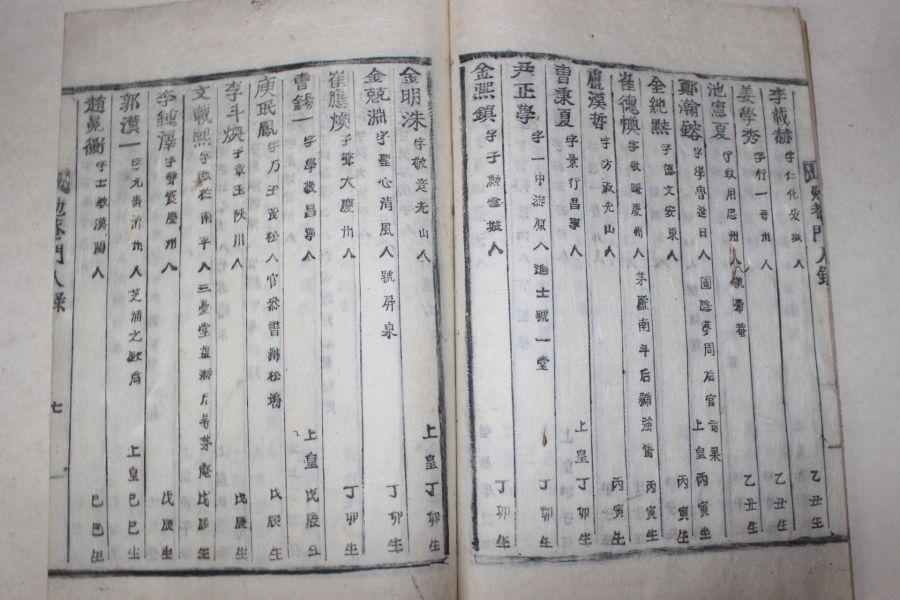 門人錄
李載赫 字仁化安城人 乙丑生
姜學秀 字行一晋州人 乙丑生
池憲夏 字致用忠州人號希菴 乙丑生
鄭瀚鎔 字學魯迎日人圃隱夢周后官司果 上皇丙寅生
全純黙 字德文安東人 丙寅生
崔德煥 字敬慶州人茅廬南斗后號強齋 丙寅生
盧漢哲 字方淑光山人 丙寅生
曹秉夏 字景行昌寧人 上皇丁卯生
尹正學 字一中漆原人進士號一堂 丁卯生
金熙鎭 字子勲雲城人 丁卯生
金明洙 字敬彦光山人 上皇丁卯生
金兢淵 字聖心淸風人號屛泉 丁卯生
崔應煥 字聲大慶州人 丁卯生
曹錫一 字學敬昌寧人 上皇戊辰生
庾民鳳 字乃王茂松人官秘書郎松塢 戊辰生
李斗煥 字章玉陜川人 戊辰生
文載熙 字南平人三憂堂益漸后号茅庵 戊辰生
李鍾澤 字聲慶州人 戊辰生
郭漢一 字允淸州人芝浦之欽后 上皇己巳生
趙衡 字士敏漢陽人 己巳生
勉菴門人錄 七